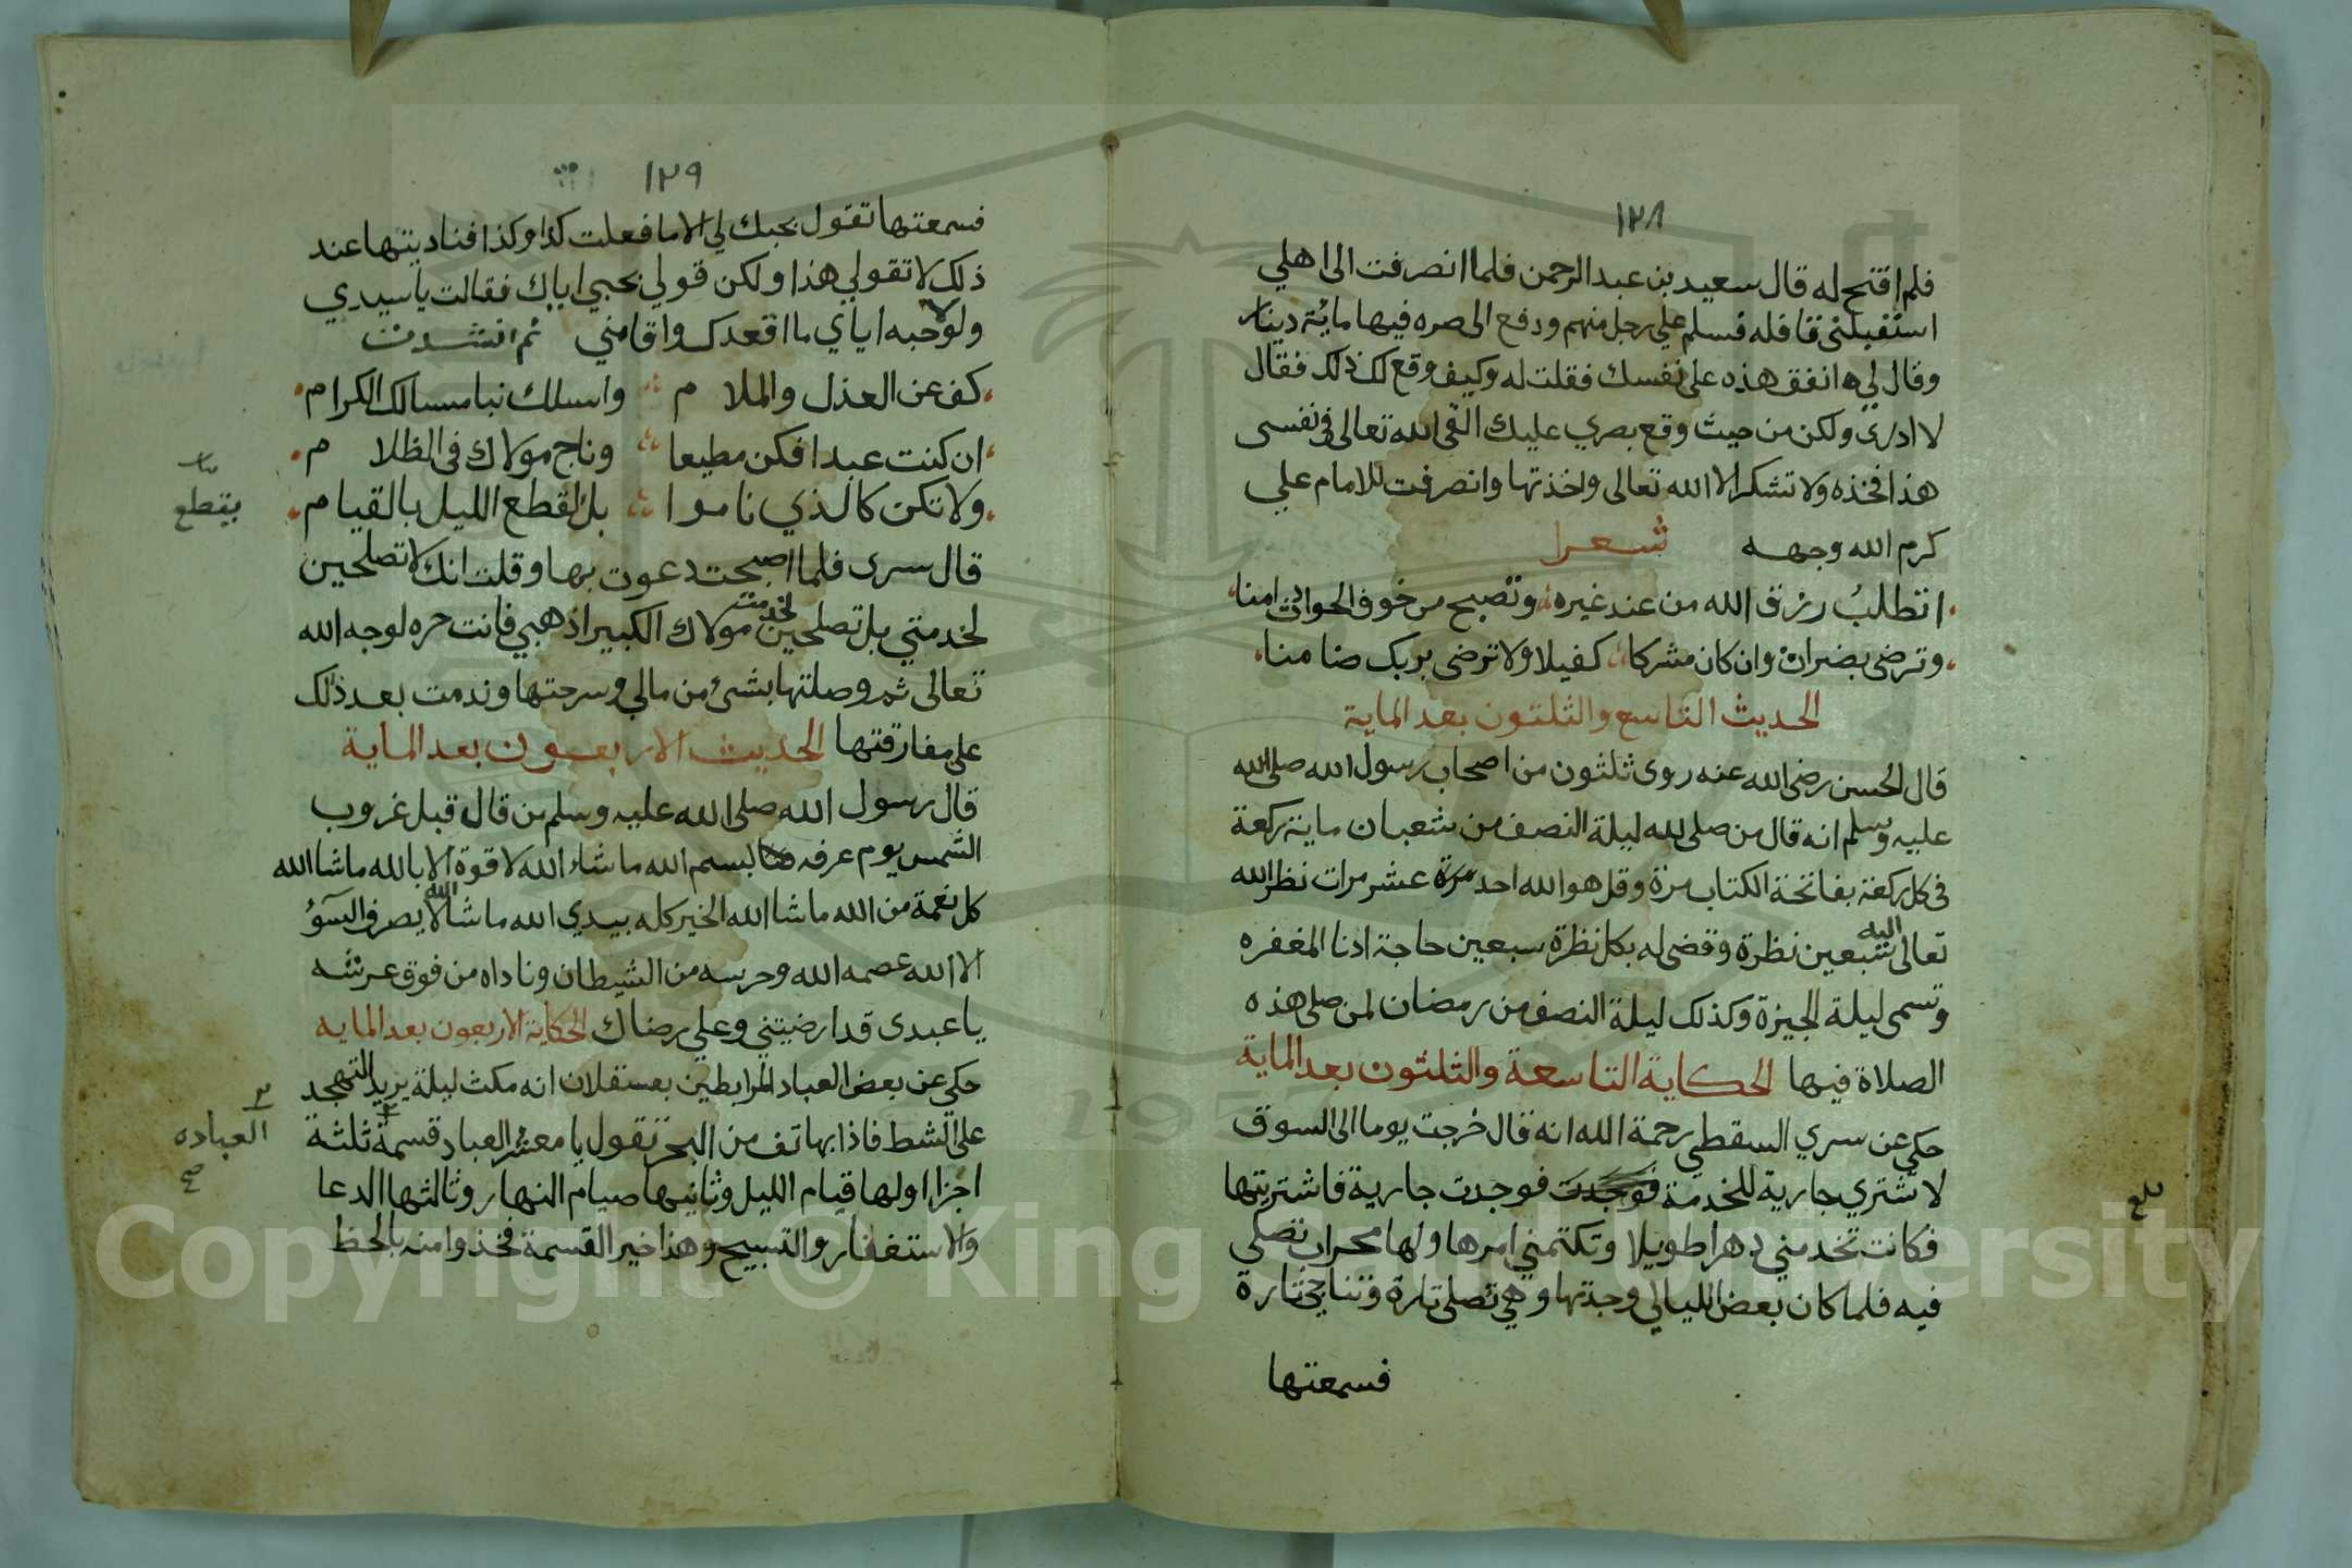 ١٢٨
فلم افتح له قال سعيد بن عبد الرحمن فلما انصرفت الى اهلي
استقبلتني قافله فسلم علي رجل منهم ودفع الى صره فيها ماية دينار
وقال لي انفق هذه على نفسك فقلت له وكيف وقع لك ذلك فقال
لا ادرى ولكن من حيث وقع بصري عليك القى الله تعالى فى نفسى
هذا فخذه ولا تشكر الا الله تعالى واخذتها وانصرفت للامام علي
كرم الله وجهه شعرا
اتطلب رزق الله من عند غيره وتصبح من خوف الحوادث امنا
وترضى بضراف وان كان مشركا كفيلا ولا ترضى بربك ضامنا
الحديث التاسع والثلثون بعد الماية
قال الحسن رضى الله عنه روى ثلثون من اصحاب رسول الله صلى الله
عليه وسلم انه قال من صلى لله ليلة النصف من شعبان ماية ركعة
فى كل ركعة بفاتحة الكتاب مرة وقل هو الله احد مرة عشر مرات نظر الله
تعالى اليه سبعين نظرة وقضى له بكل نظرة سبعين حاجة ادنا المغفره
وتسمى ليلة الجيزة وكذلك ليلة النصف من رمضان لمن صلى هذه
الصلاة فيها الحكاية التاسعة والثلثون بعد الماية
حكى عن سري السقطي رحمة الله انه قال خرجت يوما الى السوق
لاشتري جارية للخدمة فوجدت فوجدت جارية فاشتريتها
فكانت تخدمني دهرا طويلا وتكتمني امرها ولها محراب تصلى
فيه فلما كان بعض الليالي وجدتها وهي تصلى تارة وتناجي تارة
فسمعتها
بلغ
١٢٩
فسمعتها تقول بحبك لي الا ما فعلت كذا وكذا فناديتها عند
ذلك لا تقولي هذا ولكن قولي بحبي اياك فقالت يا سيدي
ولولا حبه اياي ما اقعدك واقامني ثم انشدت
كف عن العذل والملام واسلك نبا مسالك الكرام
ان كنت عبدا فكن مطيعا وناج مولاك فى الظلام
ولا تكن كالذي ناموا بل اقطع الليل بالقيام
يقطع
قال سرى فلما اصبحت دعوت بها وقلت انك لا تصلحين
لخدمتي بل تصلحين لخدمت مولاك الكبير اذهبي فانت حره لوجه الله
تعالى ثم وصلتها بشئ من مالي وسرحتها وندمت بعد ذلك
على مفارقتها الحديث الاربعون بعد الماية
قال رسول الله صلى الله عليه وسلم من قال قبل غروب
الشمس يوم عرفه بسم الله ما شاء الله لا قوة الا بالله ما شا الله
كل نعمة من الله ما شا الله الخير كله بيدي الله ما شا الله لا يصرف السؤ
الا الله عصمه الله وحرسه من الشيطان وناداه من فوق عرشه
يا عبدى قد ارضيتني وعلي رضاك الحكاية الاربعون بعد المايه
حكى عن بعض العباد المرابطين بعسقلان انه مكث ليلة يريد التهجد
على الشط فاذا بهاتف من البحر تقول يا معشر العباد قسمة ثلثة
العباده
صح
اجزا اولها قيام الليل وثانيها صيام النهار وثالثها الدعا
والاستغفار والتسبيح وهذا خير القسمة فخذوا منه بالحظ
Copyright © King Saud University
1957